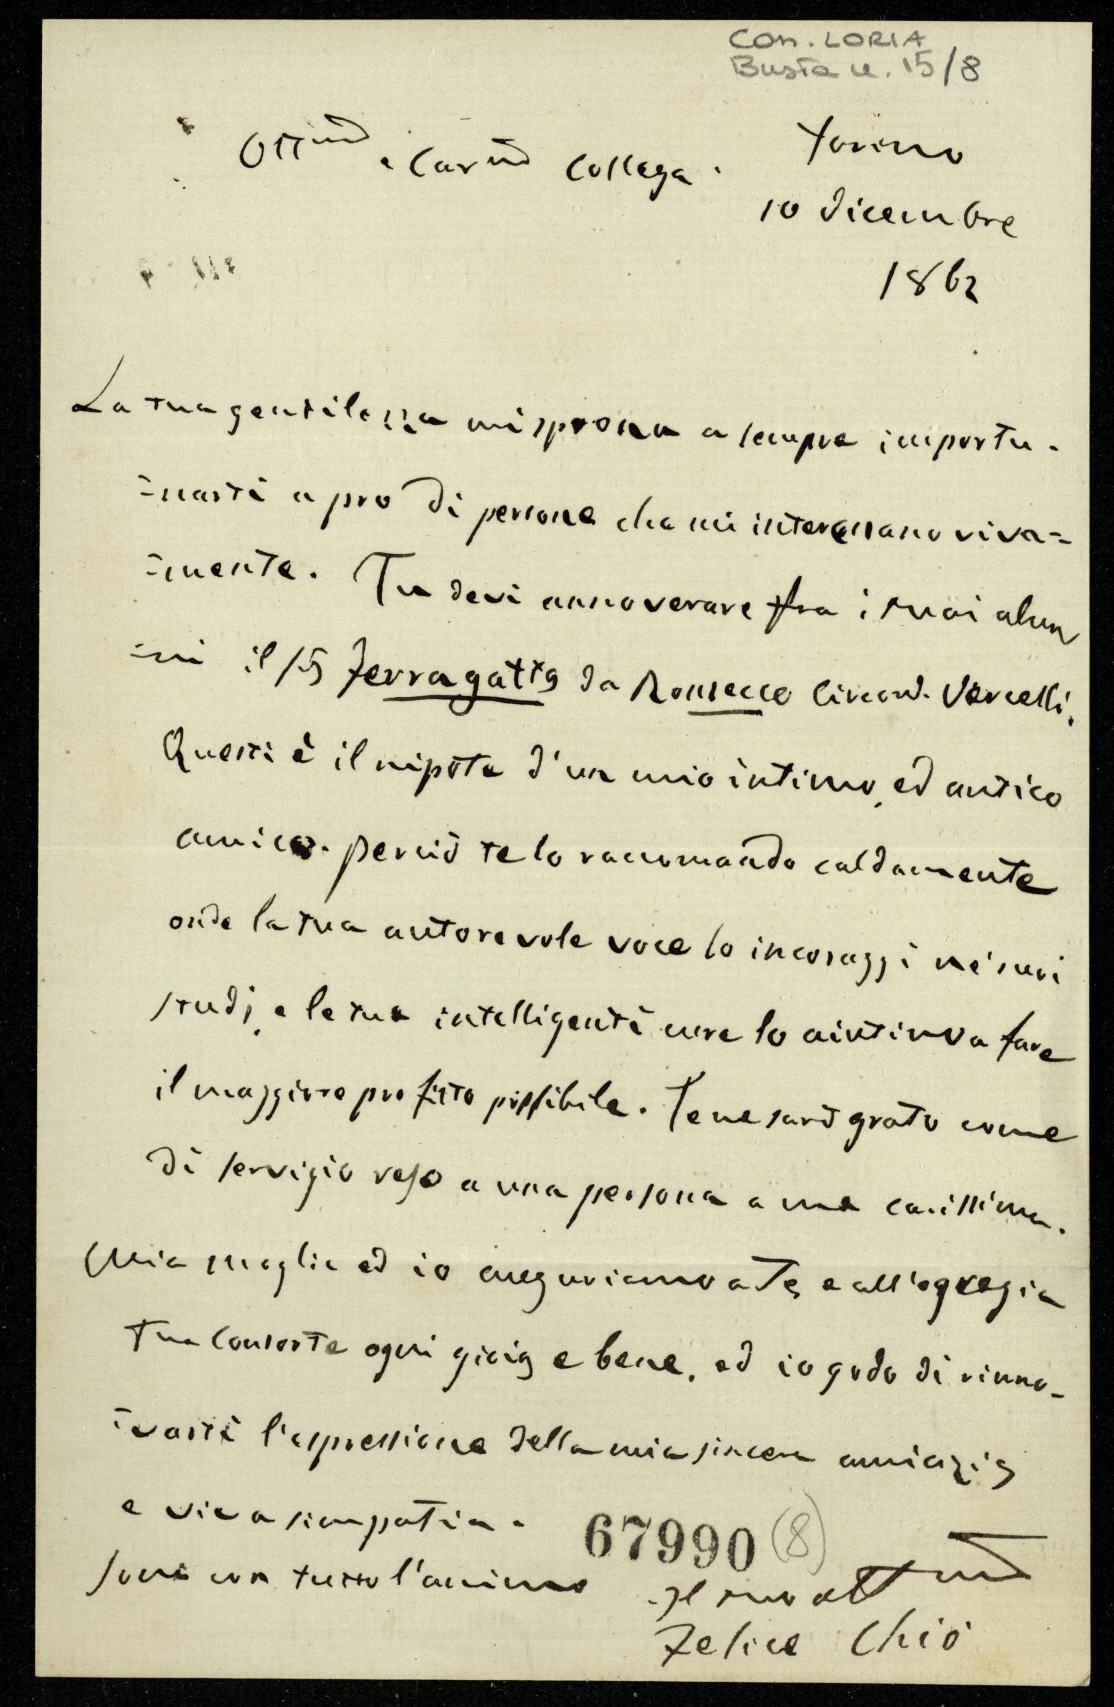 Con. LORIA
Busta n. 15/8
Ott.mo e Car.mo Collega.
Torino
10 dicembre
1862
La tua gentilezza mi sprona a sempre importu-
=narti a pro di persone che mi interessano viva=
=mente. Tu devi annoverare fra i tuoi alun
=ni il Sig Ferragatta da Ronsecco Circond. Vercelli.
Questi è il nipote d'un mio intimo, ed antico
amico. perciò te lo raccomando caldamente
onde la tua autorevole voce lo incoraggi ne' suoi
studj, e le tue intelligenti cure lo aiutino a fare
il maggiore profitto possibile. Te ne sarò grato come
di servigio reso a una persona a me carissima.
Mia moglie ed io auguriamo a Te, e all'egregia
Tua Consorte ogni gioia e bene, ed io godo di rinno-
=varti l'espressione della mia sincera amicizia
e viva simpatia.
Sono con tutto l'animo
67990 (8)
Il tuo att.mo
Felice Chiò